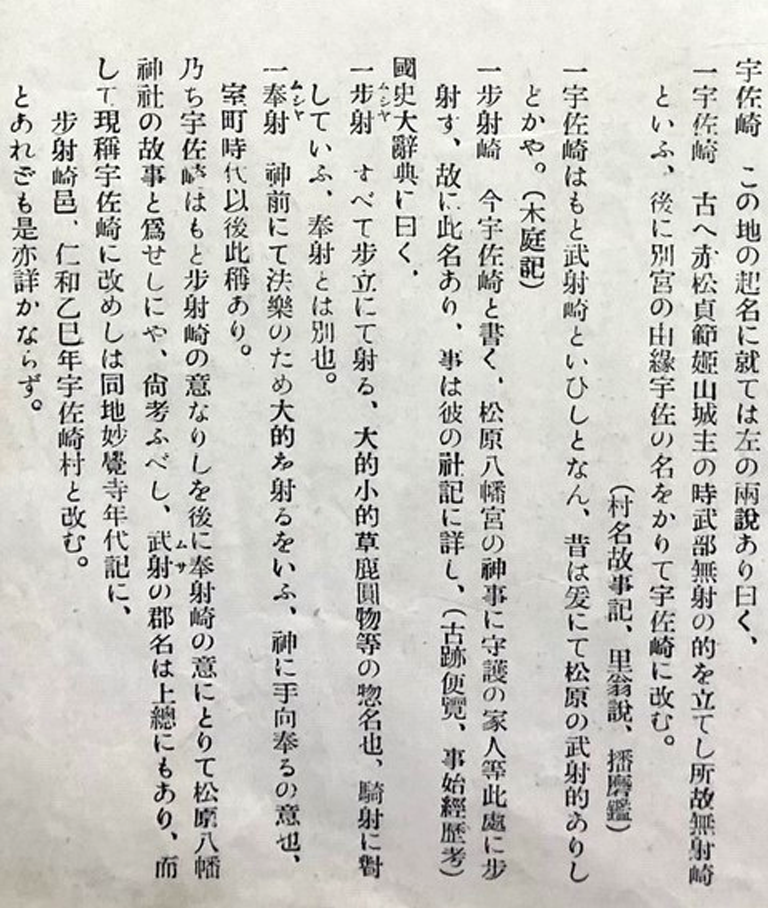 宇佐崎　この地の起名に就ては左の兩說あり曰く、
一宇佐崎　古へ赤松貞範姬山城主の時武部無射の的を立てし所故無射崎
といふ、後に別宮の由緣宇佐の名をかりて宇佐崎に改む。
（村名故事記、里翁說、播磨鑑）
一宇佐崎はもと武射崎といひしとなん、昔は爰にて松原の武射的ありし
とかや。（木庭記）
一步射崎　今宇佐崎と書く、松原八幡宮の神事に守護の家人等此處に步
射す、故に此名あり、事は彼の社記に詳し、（古跡便覽、事始經歷考）
國史大辭典に曰く、
一步射　すべて步立にて射る、大的小的草鹿圓物等の惣名也、騎射に對
ムシヤ
していふ、奉射とは別也。
一奉射　神前にて法樂のため大的を射るをいふ、神に手向奉るの意也、
ムシヤ
室町時代以後此稱あり。
乃ち宇佐崎はもと步射崎の意なりしを後に奉射崎の意にとりて松原八幡
神社の故事と爲せしにや、尙考ふべし、武射の郡名は上總にもあり、而
ムサ
して現稱宇佐崎に改めしは同地妙覺寺年代記に、
步射崎邑、仁和乙巳年宇佐崎村と改む。
とあれども是亦詳かならず。